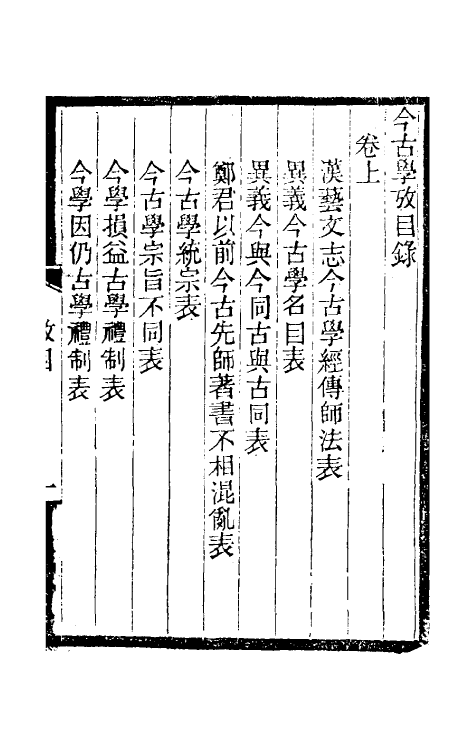 今古學攷目錄
卷上
漢藝文志今古學經傳師法表
異義今古學名目表
異義今與今同古與古同表
鄭君以前今古先師著書不相混亂表
今古學統宗表
今古學宗旨不同表
今學損益古學禮制表
今學因仍古學禮制表